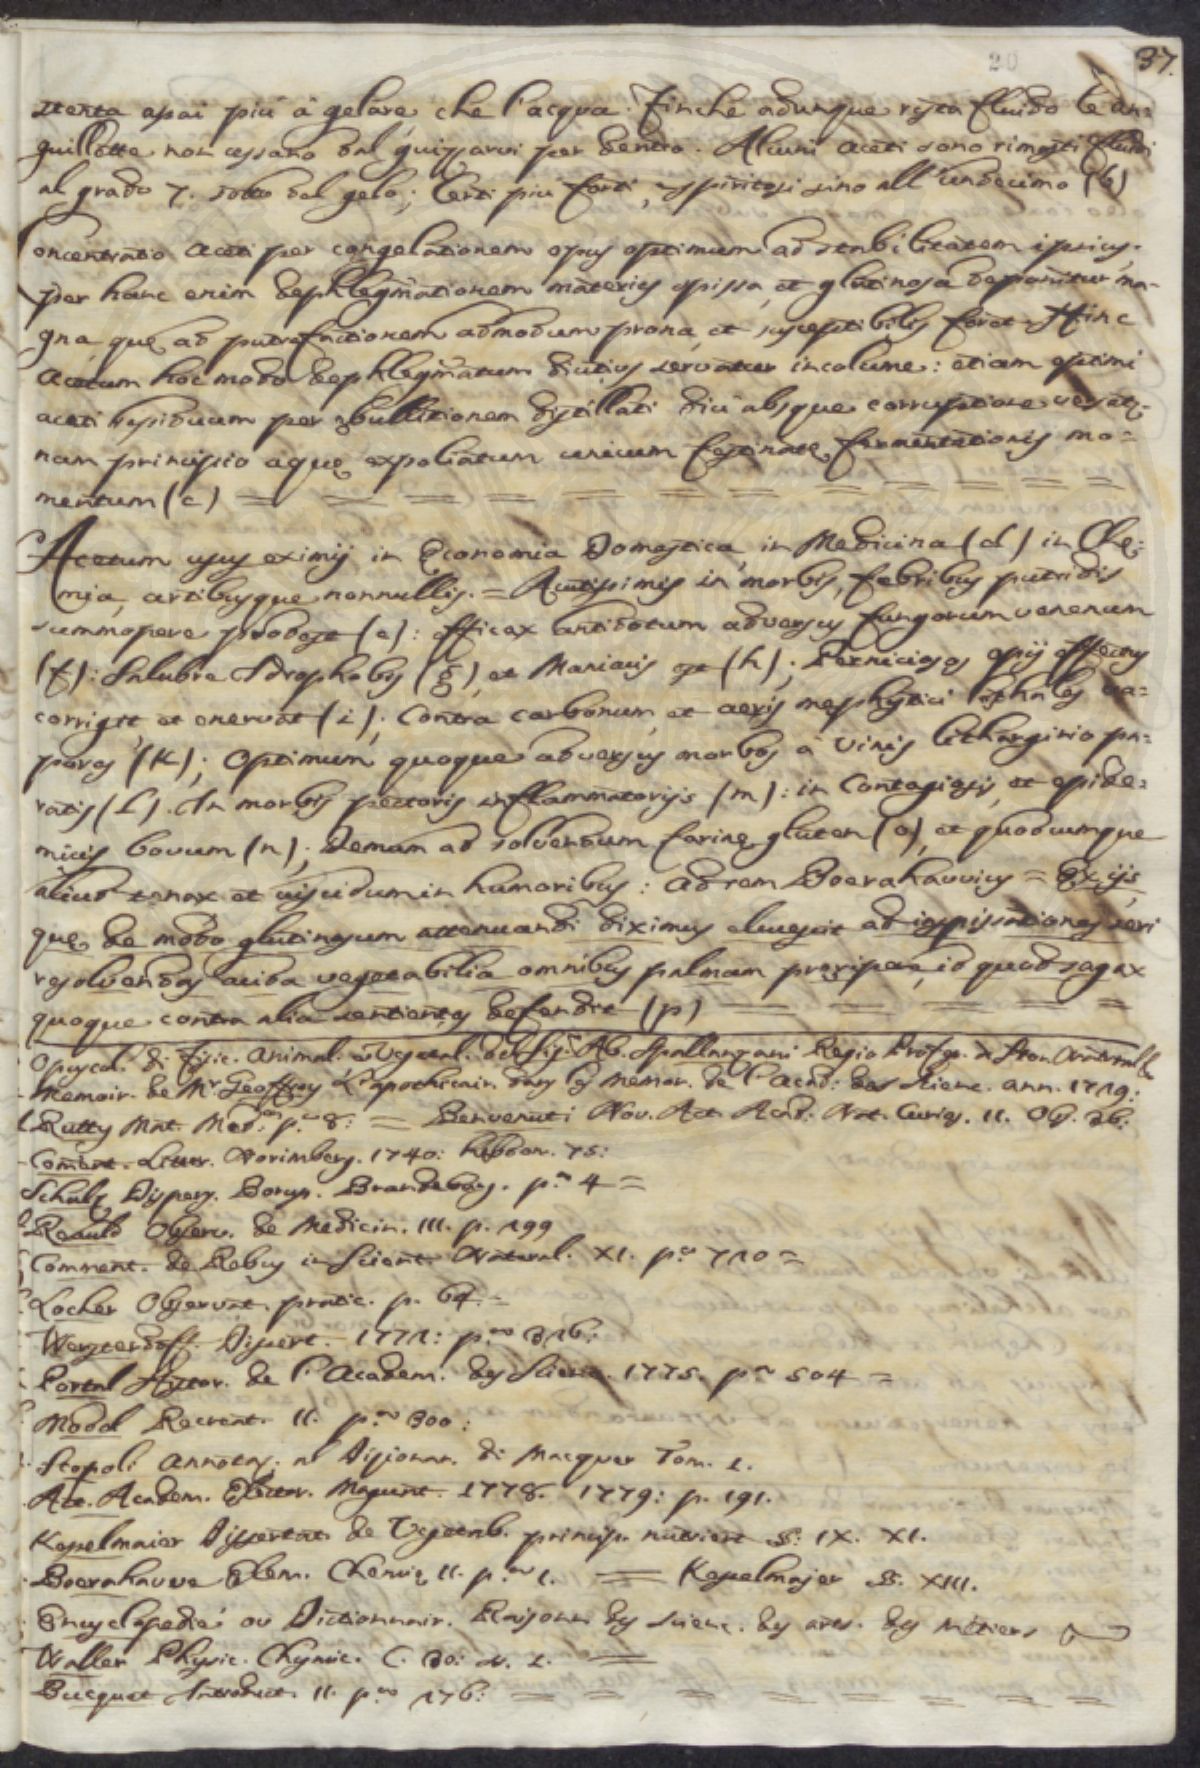 20 37.
stenta assai più à gelàre, che l'acqua. Finchè adunque resta fluido le an=
guillette non cessano dal guizzarvi per dentro. Alcuni aceti sono rimasti fluidi
al grado 7. sotto dal gelo; Certi più forti, e spiritosi sino all'undecimo (b)
Concentratio aceti per congelationem opus optimum ad stabilitatem ipsius.
per hanc enim dephlegmationem materies spissa, et glutinosa deponitur ma-
gna, quę ad putrefactionem admodum prona, et susceptibilis foret. Hinc
Acetum hoc modo dephlegmatum diutius servatur incolume: etiam optimi
aceti residuum per ebullitionem distillati diù absque corruptione versat:
nam principio aquę expoliatum unicum festinatę fermentationis mo=
mentum (c)
Acetum usus eximij in Economia Domestica, in Medicina (d) in Che:
mia, artibusque nonnullis. = Acutissimis in morbis, febribus putridis
summopere prodest (e): efficax antidotum adversus fungorum venenum
(f): Salubre Idrophobis (g), et Maniacis est (h); Perniciosos opij effectus
corrigit, et enervat (i); Contra carbonum, et aeris mephytici lethales va=
pores (K); Optimum quoque adversus morbos à Vinis lithargirio pa=
ratis (L). In morbis pectoris inflammatorijs (m): in Contagiosis, et epide=
micis bovum (n); Demum ad solvendum farinę gluten (o), et quodcumque
aliud tenax et viscidum in humoribus: ad rem Boerahavvius = Ex ijs,
quę de modo glutinosum attenuandi diximus elucescit ad inspissationes seri
resolvendas acida vegetabilia omnibus palmam proripere, id quod sagax
quoque contra alia sentientes defendit (p)
Opuscol. di Fisic. Animal. e Veget. del Sig. Ab. Spallanzani Regio Profes. di Stor. Natural.
Memoir. de Mr Geoffroy L'apothicair. dans les Memor. de l'Acad: des Scienc. ann. 1719:
Rutty Mat. Med. p. 8: = Benvenuti Nov. Act. Acad. Nat. Curios. II. Obs. 26:
Coment. Litter. Norimberg. 1740: hebdom. 75:
Schulz Dispens. Boruss. Brandeburg. p. 4 =
Reauld Observ. de Medicin. III. p. 199
Comment. de Rebus in Scient. Natural. XI. p. 710 =
Locher Observat. pratic. p. 64. =
Dissert. 1771: p. 316:
Portal Histor. de l'Academ. des Scienc. 1775. p. 504 =
Model Recreat. II. p. 300:
Scopoli annotaz. al Dizionar. di Macquer Tom. I.
Act. Academ. Elector. Mogunt. 1778. 1779: p. 191.
Kesselmaier Dissertat. de Vegetab. princip. nutrient. §: IX. XI.
Boerahavve Elem. Chemię II. p. 1. = Kesselmajer §. XIII.
Encyclopedie ou Dictionnair. Raisonn. des scienc. des arts. des métiers
Waller Physic. Chymic. C. 20: §. 2.
Bucquet Introduct. II. p. 176: